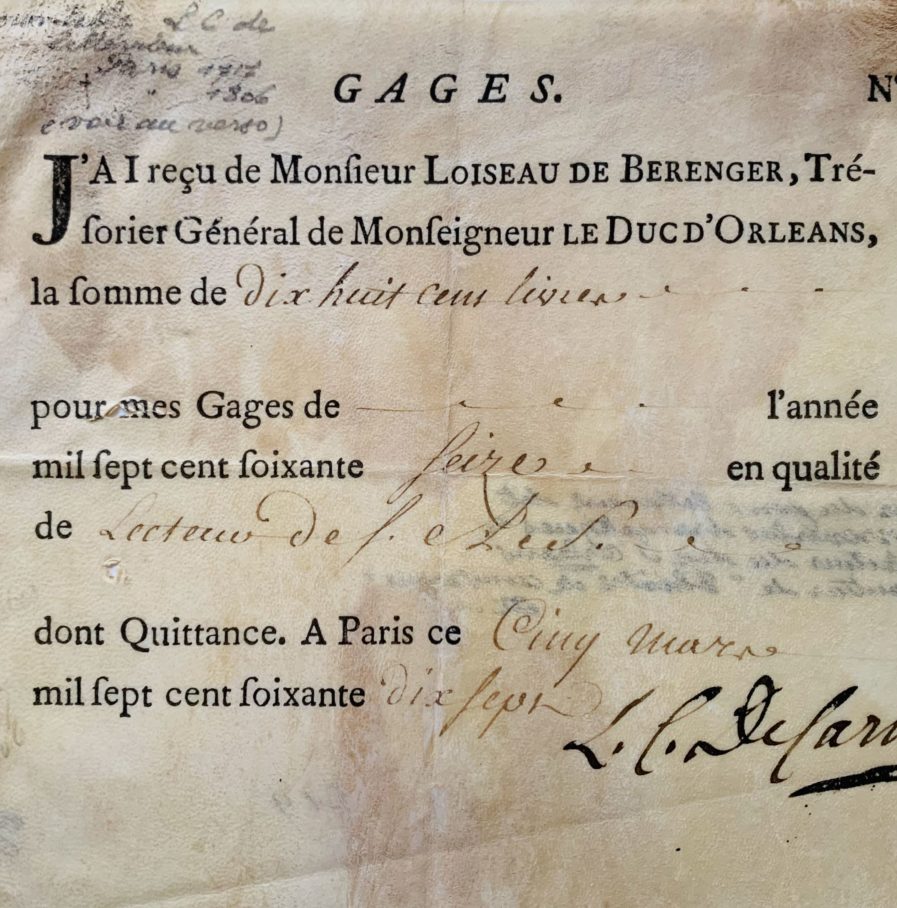 L C de
Paris 1717
" 1806
(voir au verso)
GAGES. N°
J'AI reçu de Monſieur LOISEAU DE BERENGER, Tré-
ſorier Général de Monſeigneur LE DUC D'ORLEANS,
la ſomme de dix huit cens livres
pour mes Gages de l'année
mil ſept cent ſoixante ſeize en qualité
de Lecteur de S. A. S.
dont Quittance. A Paris ce Cinq mars
mil ſept cent ſoixante dix ſept
L. C. De Carm